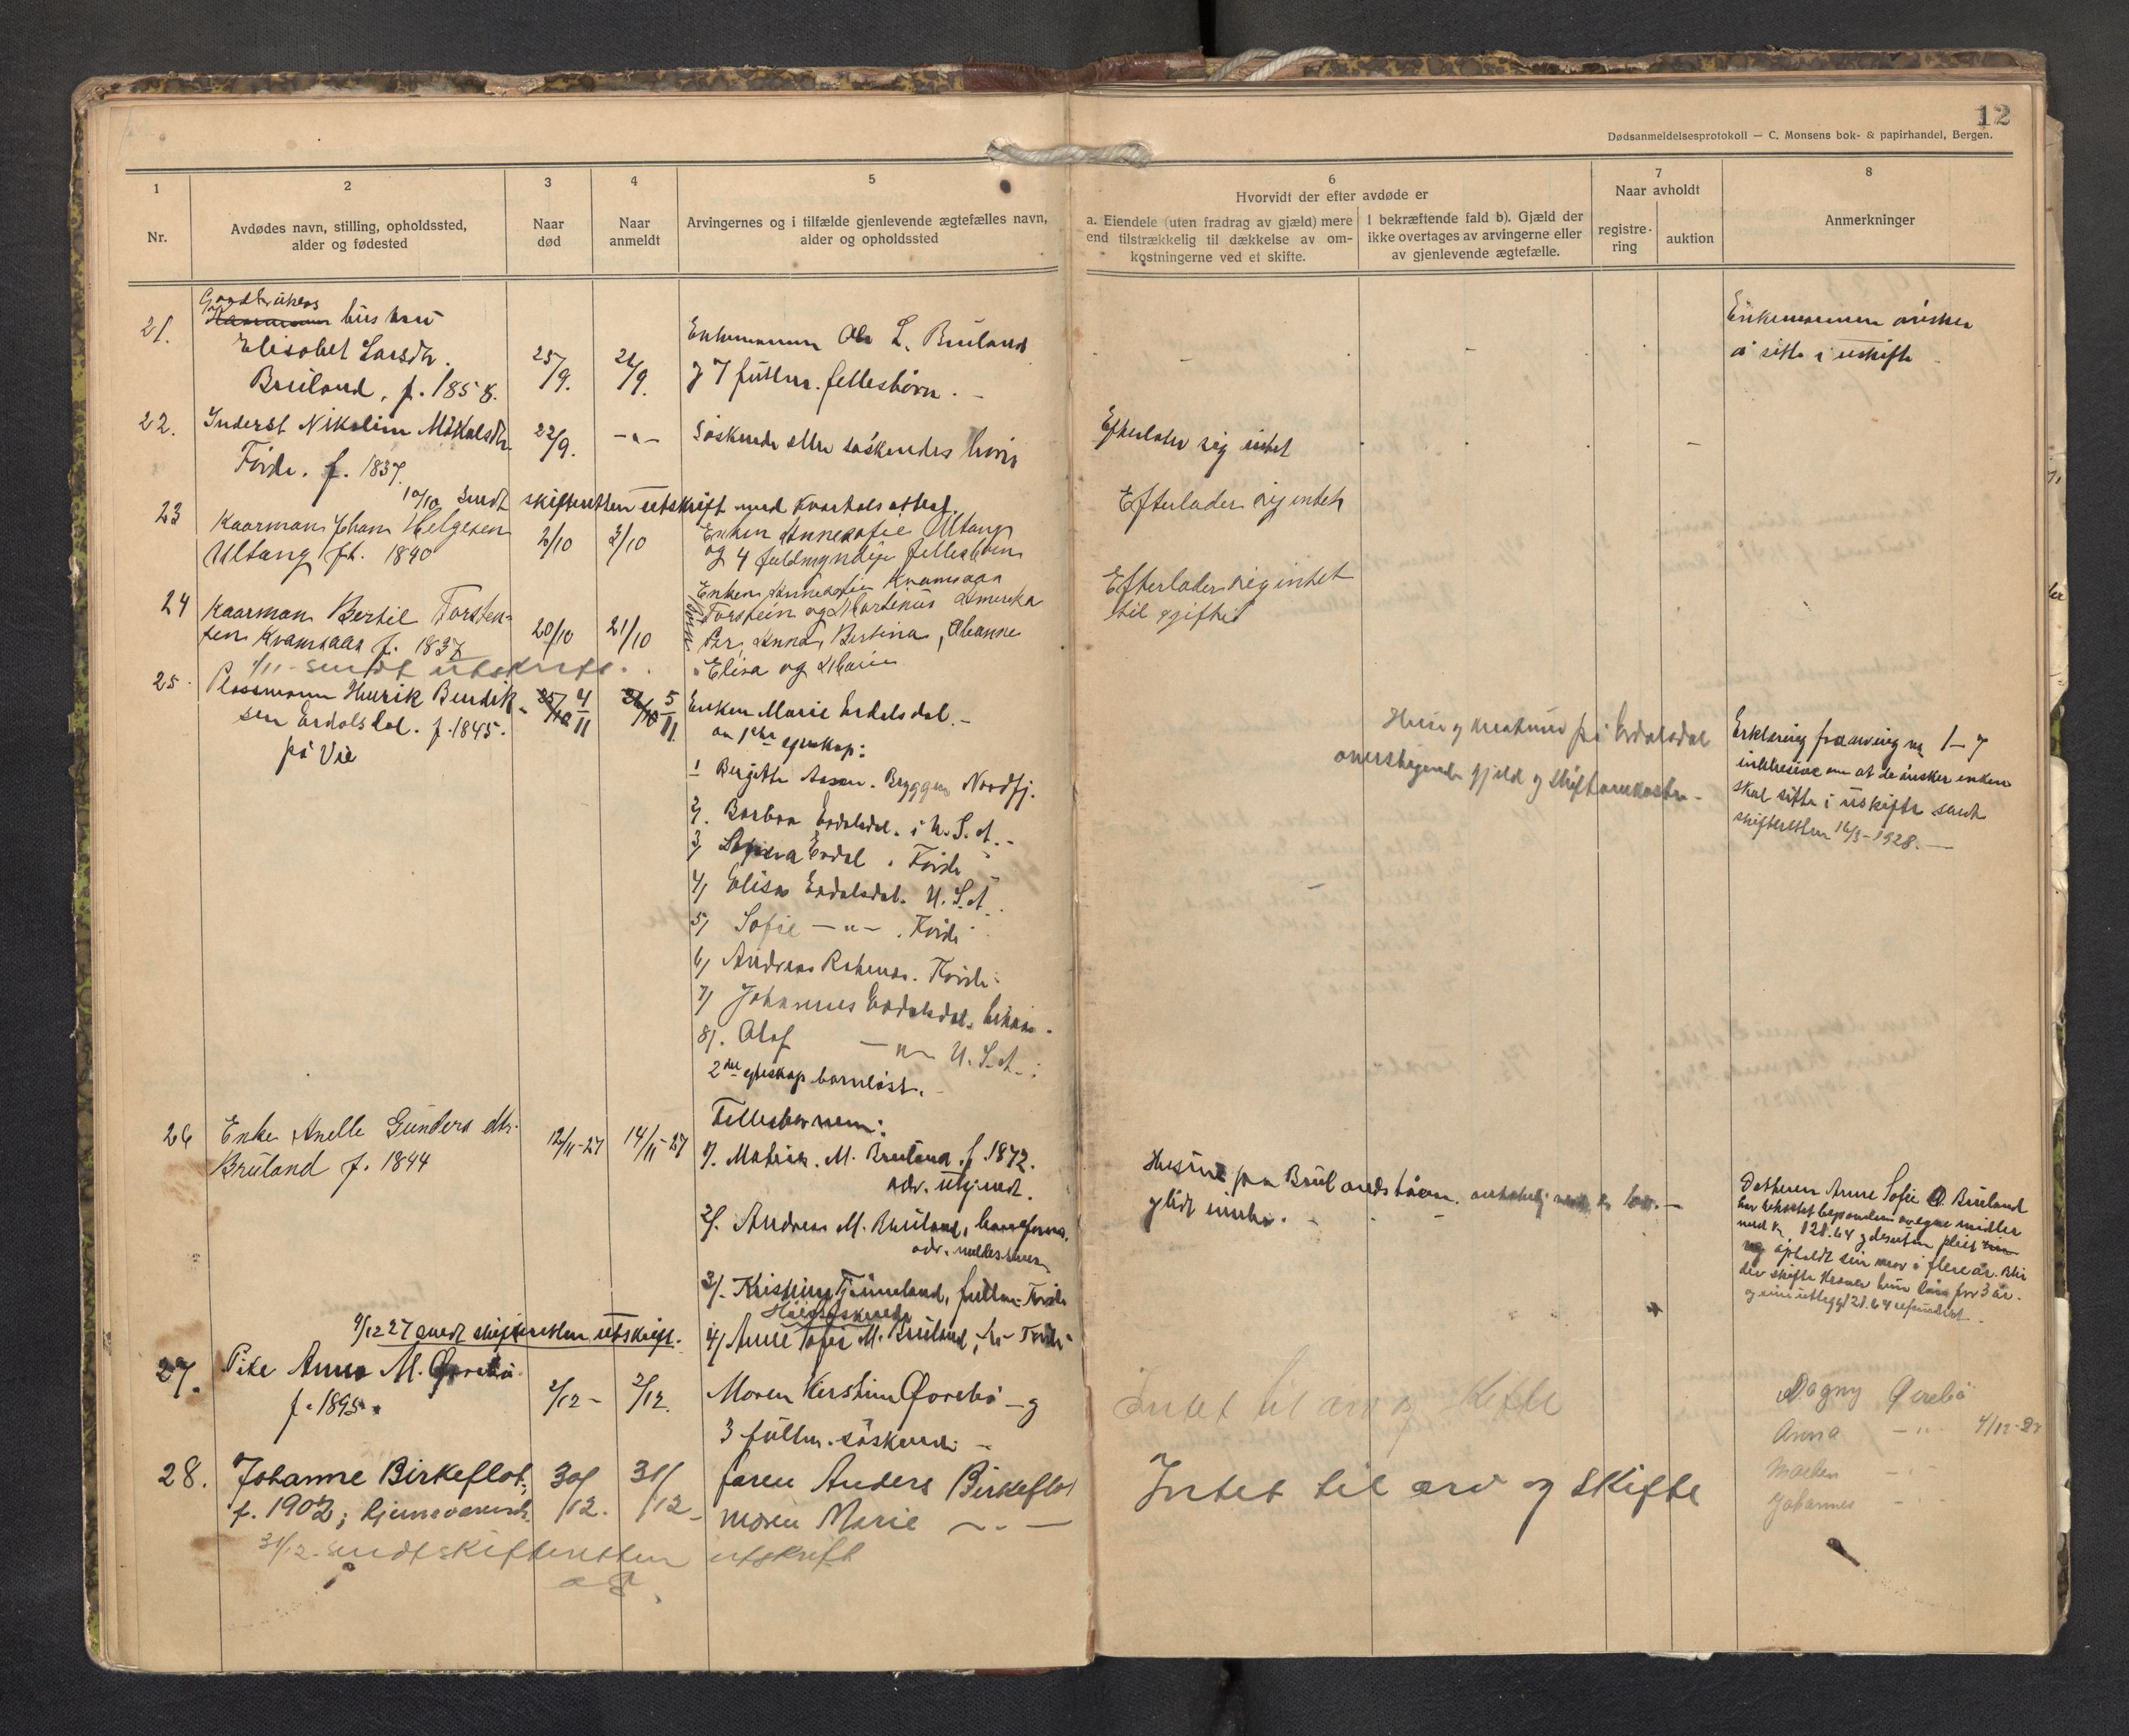 12
Dødsanmeldelsesprotokoll — C. Monsens bok- & papirhandel, Bergen.
1
2
3
4
5
6
7
8
Nr.
Avdødes navn, stilling, opholdssted,
alder og fødested
Naar
død
Naar
anmeldt
Arvingernes og i tilfælde gjenlevende ægtefælles navn,
alder og opholdssted
Hvorvidt der efter avdøde er
a. Eiendele (uten fradrag av gjæld) mere
end tilstrækkelig til dækkelse av om-
kostningerne ved et skifte.
I bekræftende fald b). Gjæld der
ikke overtages av arvingerne eller
av gjenlevende ægtefælle.
Naar avholdt
registre-
ring
auktion
Anmerkninger
21.
Gaardbrukers
hustru
Elisabet Larsdtr.
Bruland, f. 1858.
25/9.
26/9.
Enkemannen Ole L. Bruland
og 7 fullm. fellesbørn. -
Enkemannen ønsker
å sitte i uskifte
22.
Inderst Nikoline Mikalsdtr
Førde. f. 1837.
22/9.
-"-
Søskende eller søskendes børn
Efterlater sig intet
10/10 sendt skifteretten utskrift med kvartalsattest.
Efterlader sig intet
23
Kaarmann Johan Helgesen
Ultang ft. 1840
2/10
3/10
Enken Annesofie Ultang
og 4 fuldmyndige fellesbörn
24
Kaarman Bertil Torsten-
sen Kvamsaas f. 1837
20/10
21/10
Enken Annesofie Kvamsaas
Torstein og Martinus Amerika
Per, Anna, Bertina, Oleanne
Elisa og Marie
Efterlader sig intet
til skifte
1/11 - sendt utskrift.
25
Plassmann Henrik Bendik-
sen Erdalsdal. f. 1845.
på Vie
4/11
5/11.
Enken Marie Erdalsdal. -
av 1ste egteskap:
1 Bergitte Aasen. Bryggen Nordfj.
2. Barbra Erdalsdal. i U.S.A. -
3) Erdal. Førde
4) Elisa Erdalsdal. U.S.A.
5) Sofie -"- . Førde
6) Andreas . Førde -
7) Johannes Erdalsdal.
8). Olaf -"- U.S.A. -
2det egteskap barnløst. -
Huse og kreaturer på Erdalsdal
overstigende gjeld og skifteomkostn. -
Erklæring fra arving nr. 1-7
inklusive om at de ønsker enken
skal sitte i uskifte sendt
skifteretten 16/3-1928. -
26
Enke Anelle Gunders dtr.
Bruland f. 1844
12/11-27
14/11-27
Fellesbarnene:
1). Mathias M. Bruland f. 1872.
adr. ubekjendt.
2). Andreas M. Bruland,
adr.
3). Kristine Tjønneland, fullm. Førde
Halvsøskende
4) Anne Sofie M. Bruland, -"- Førde
Husene paa Brulandshåen.
og litt innbo. -
Datteren Anne Sofie O. Bruland
har bekostet begravelsen av egne midler
med kr. 128.64 og desuten pleiet
og opholdt sin mor i flere år. Blir
der skifte krever hun løn for 3 år.
9/12 27 sendt skifteretten utskrift.
27.
Pike Anna M. Øvrebø
f. 1895.
2/12 -
2/12.
Moren Kerstine Øvrebø - og
3 fullm. søskende -
Intet til arv og skifte
Dagny Øvrebø
Anna -"- 4/12-27
-"-
Johannes -"-
28.
Johanne Birkeflot,
f. 1902; hjemmeværende
30/12.
31/12 -
faren Anders Birkeflot
moren Marie -"-
Intet til arv og skifte
31/12. sendt skifteretten utskrift